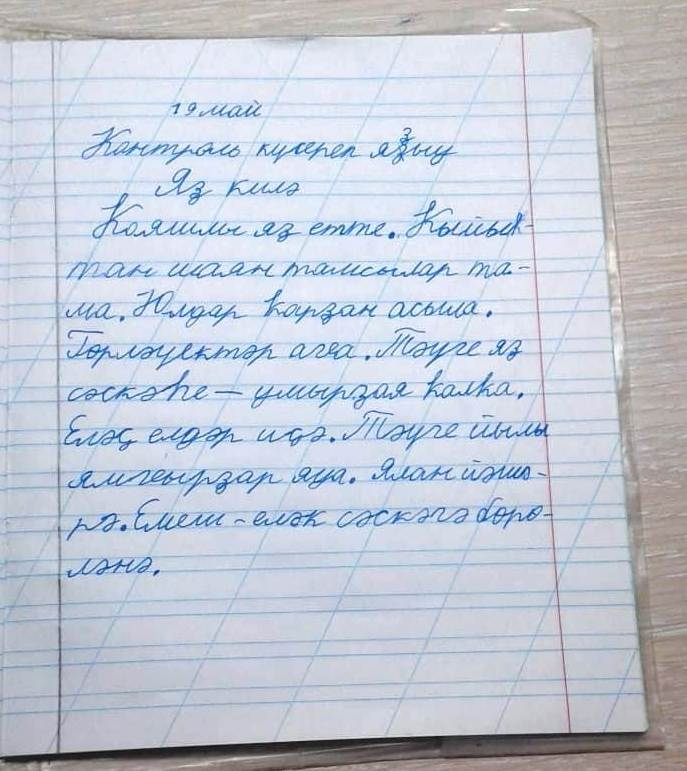 19 май
Контроль күсереп яҙыу
Яз килә
Кояшлы яз етте. Кыйык-
тан шаян тамсылар та-
ма. Юлдар карҙан асыла.
Гөрләүектәр аға. Тәүге яз
сәскәһе – умырзая калка.
Еләҫ елдәр иҫә. Тәүге йылы
ямғырҙар яуа. Ялан йәшә-
рә. Емеш-еләк сәскәгә бөрө-
ләнә.